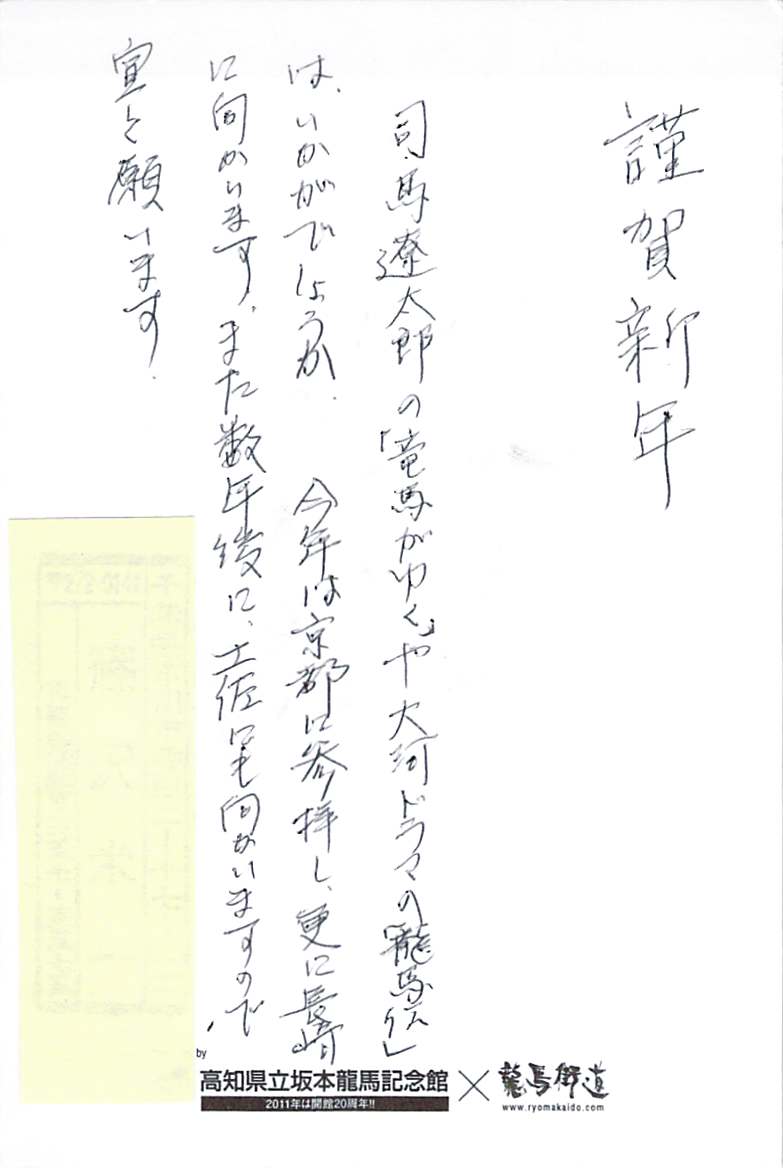 謹賀新年
司馬遼太郎の「竜馬がゆく」や大河ドラマの「龍馬伝」
は、いかがでしょうか。 今年は京都に参拝し、更に長崎
に向かいます。また数年後に、土佐にも向かいますので、
宜しく願います。
by
高知県立坂本龍馬記念館×龍馬街道
2011年は開館20周年!!
www.ryomakaido.com